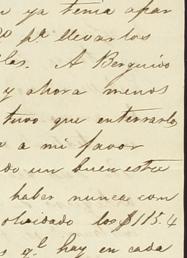 ya tenia apar
pª llevarlos
A Berguido
y ahora menos
tuvo que enterrarlos
a mi favor
un buen estu
haber nunca con
olvidado los $115.4
qᵉ hay en cada